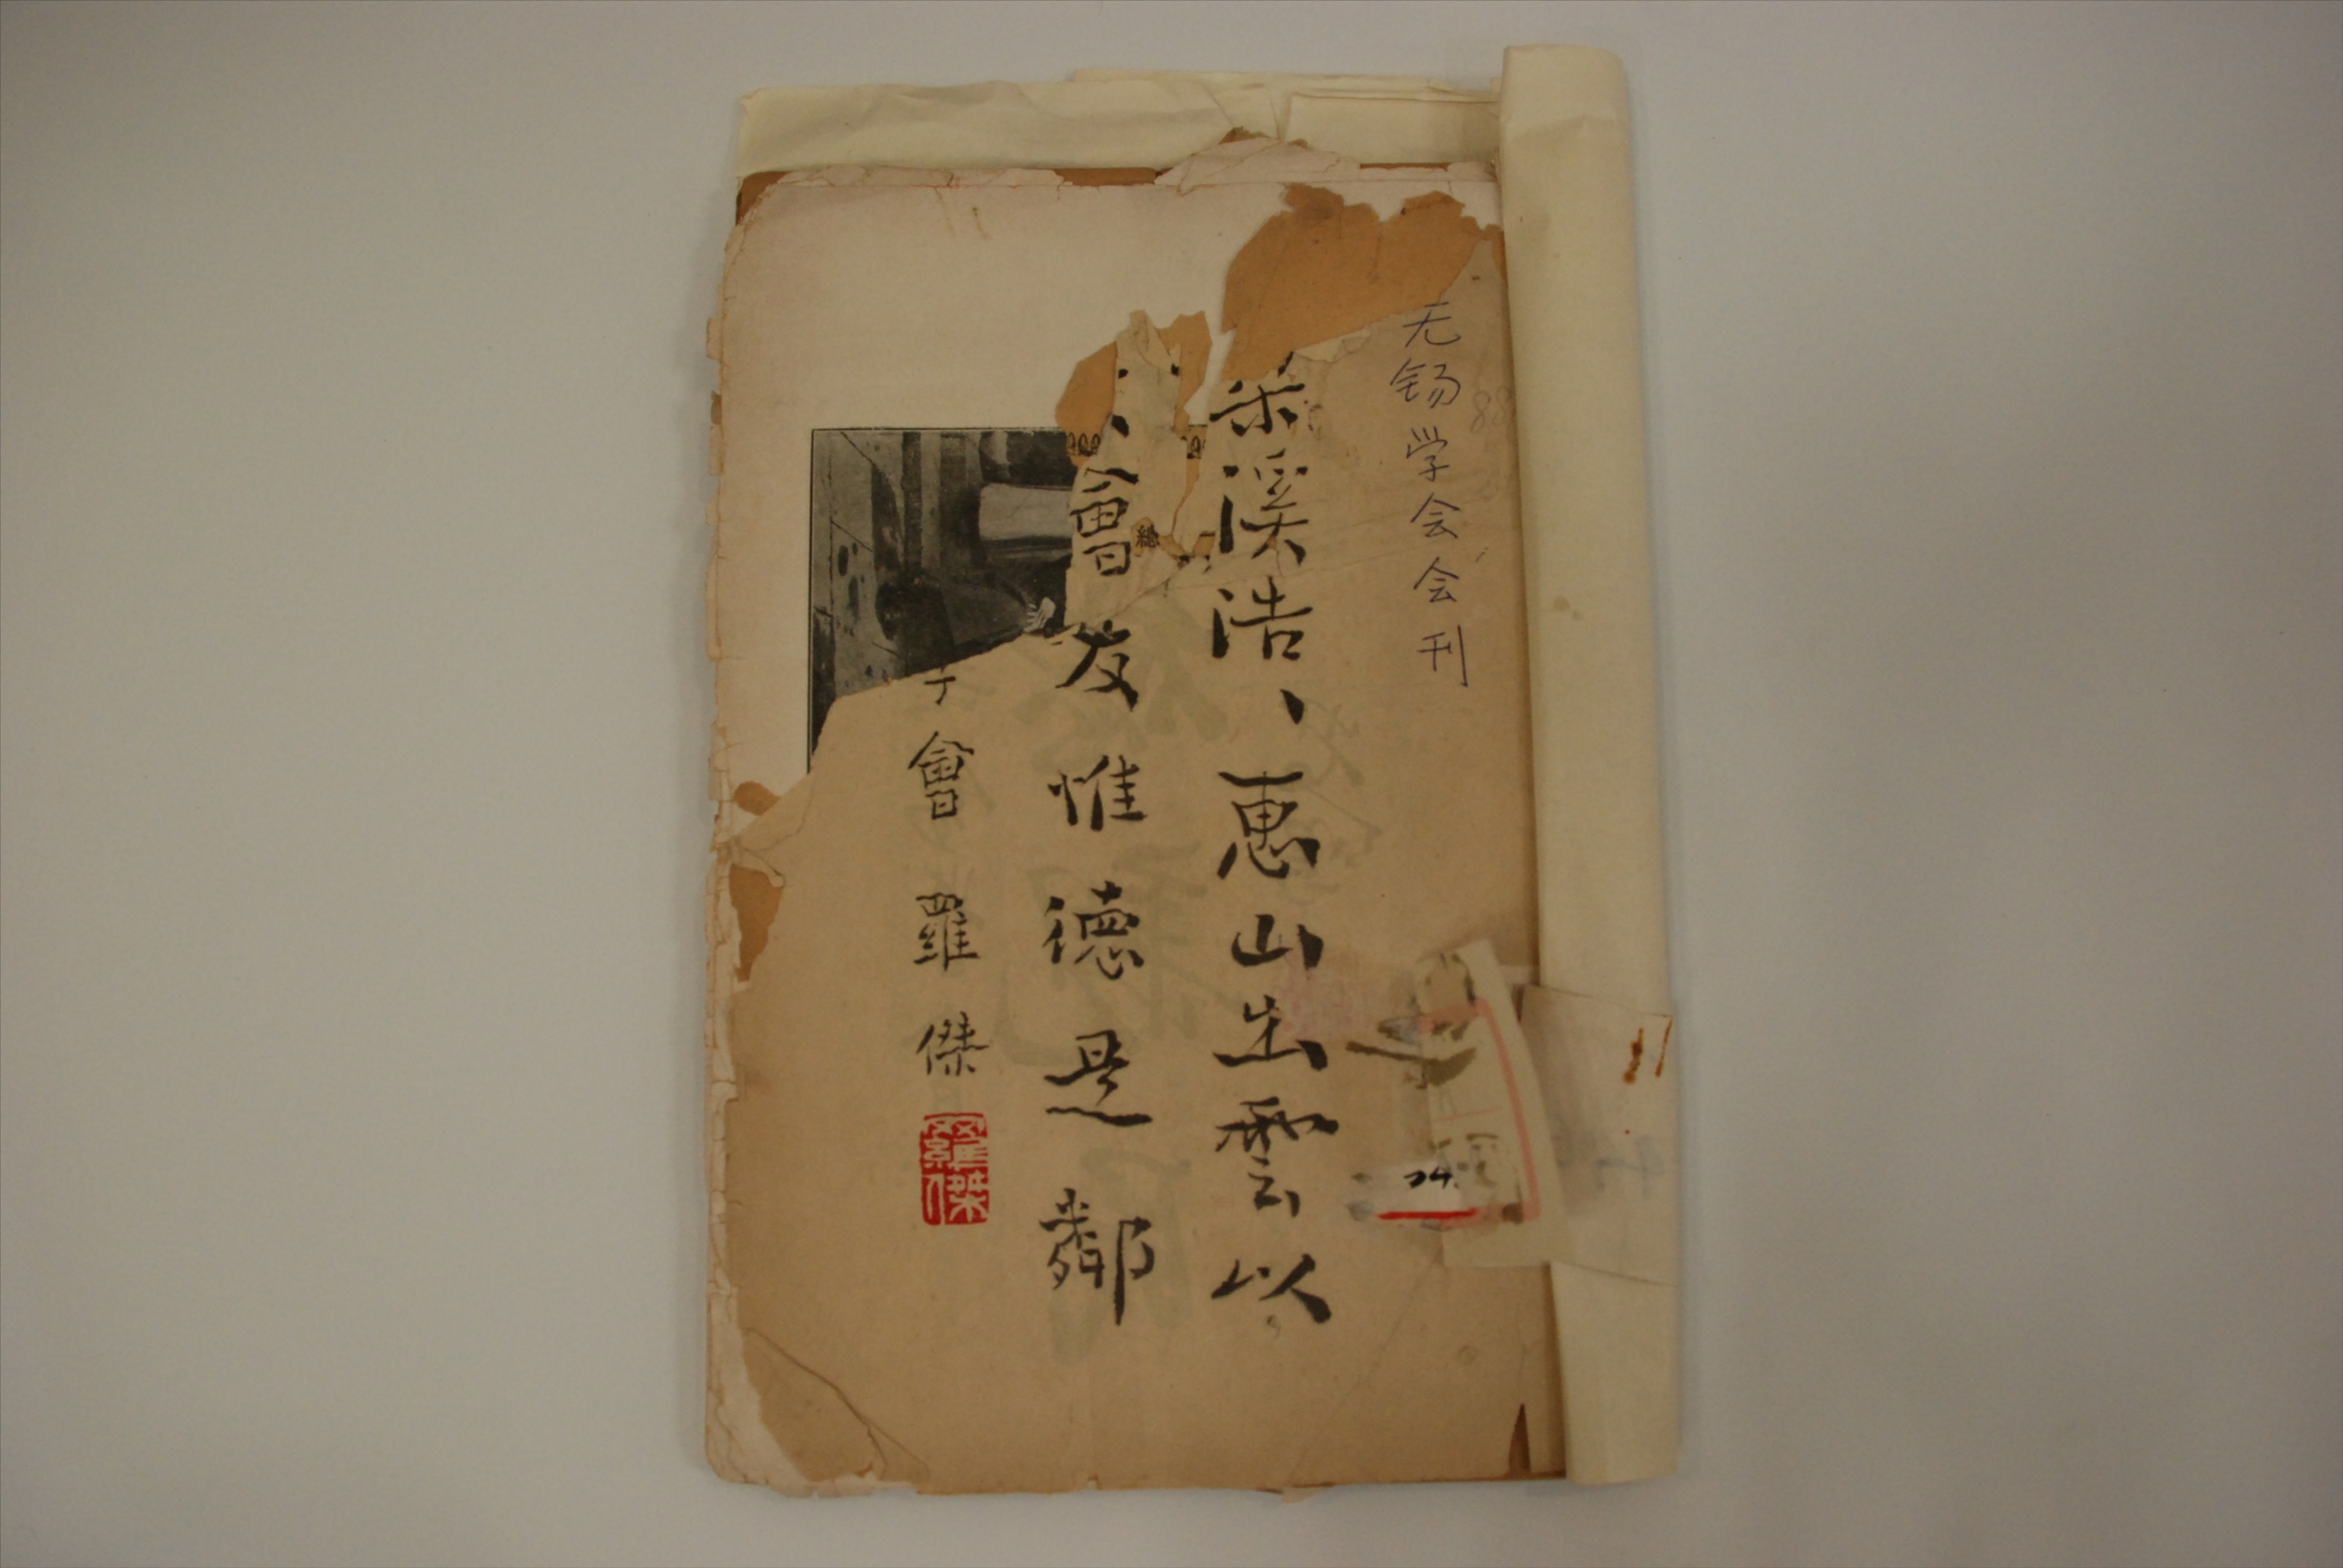 无锡学会会刊
梁溪浩、惠山出雲以
會友惟德是鄰
總
會羅傑
羅傑
24.